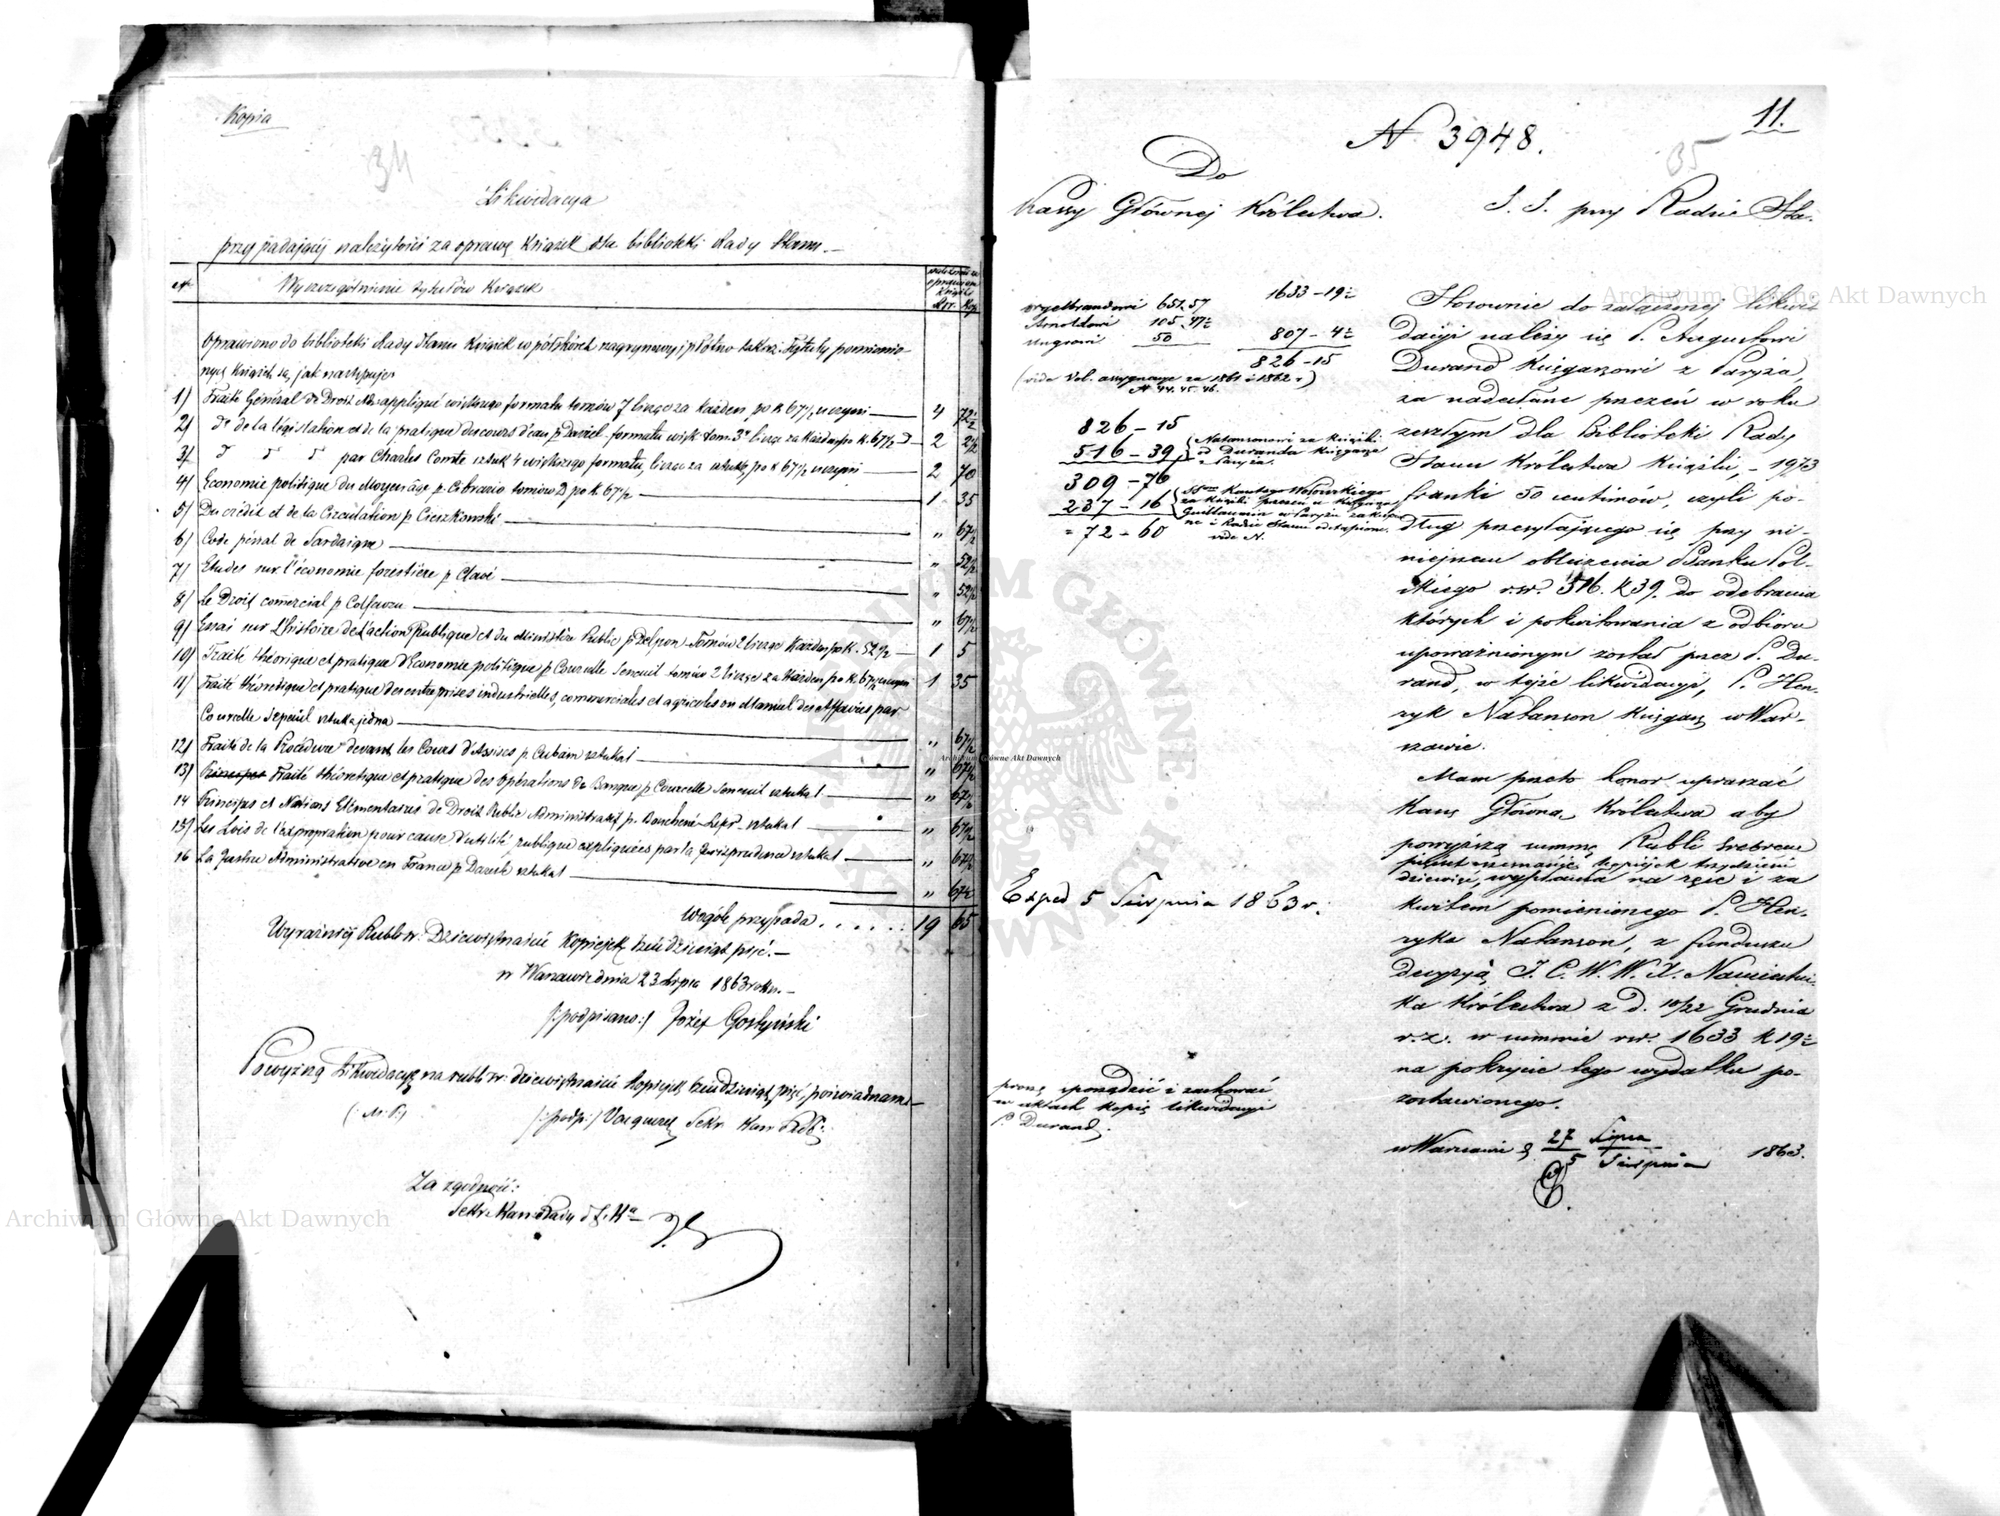 Kopia
34
Likwidacya
przypadającej należytości za oprawę książek dla biblioteki Rady Stanu. —
Nr Wyszczególnienie tytułów książek
Rsr. Kop.
Oprawiono do biblioteki Rady Stanu książek w półskórek zagrzynowy i płótno takież. Tytuły pomienio-
nych książek są, jak następuje
1) Traité Général de Droit Adm. appliqué większego formatu tomów 7 licząc za każden po k. 67½ uczyni — 4 72½
2) do de la législation et de la pratique des cours d'eau p. Daviel formatu więk. tom. 3 licząc za każden po k. 67½ — 2 2½
3) do do do par Charles Comte sztuk 4 większego formatu, licząc za sztukę po k. 67½ uczyni — 2 70
4) Economie politique du Moyen âge p. Cibrario tomów 2 po k. 67½ — 1 35
5) Du crédit et de la Circulation p. Cieszkowski — „ 67½
6) Code pénal de Sardaigne — „ 52½
7) Etudes sur l'économie forestière p. Clavé — „ 52½
8) Le Droit commercial p. — „ 67½
9) Essai sur l'histoire de l'action Publique et du Ministère Public p. Delpon Tomów 2 licząc każden po k. 52½ — 1 5
10) Traité théorique et pratique d'Economie politique p. Courcelle Seneuil tomów 2 licząc za każden po k. 67½ uczyni 1 35
11) Traité théorique et pratique des entreprises industrielles, commerciales et agricoles ou Manuel des Affaires par
Courcelle Seneuil sztuka jedna — „ 67½
12) Traité de la Procédure devant les Cours d'Assises p. Cubain sztuka 1 — „ 67½
13) Traité théorique et pratique des Opérations de Banque p. Courcelle Seneuil sztuka 1 — „ 67½
14 Principes et Notions Elementaires de Droit Public Administratif p. Bouchené-Lefer sztuka 1 — „ 67½
15) Les Lois de l'expropriation pour cause d'utilité publique expliquées par la Jurisprudence sztuka 1 — „ 67½
16 La Justice Administrative en France p. Dareste sztuka 1 — „ 67½
Wogóle przypada . . . . . 19 65
Wyraźniej Rubli sr. Dziewiętnaście kopiejek sześćdziesiąt pięć. —
w Warszawie dnia 23 Lipca 1863 roku. —
/:podpisano:/ Józef Gostyński
Powyższą Likwidacyę na rubli sr. dziewiętnaście kopiejek sześćdziesiąt pięć, poświadczam. —
(: M. P.)
/:podp:/ Vacqueret Sekr. Kan.
Za zgodność:
Sekr. Kan. Rady
11.
N 3948.
35
Do
Kassy Głównej Królestwa.
S. S. przy Radzie Sta.
1633 – 19½
Orgelbrandowi 651.57
Arnoldowi 105.47½
Ungrowi 50
807 – 4½
826 – 15
(vide Vol. assygnacye za 1861 i 1862 r)
N 44. 45. 46.
826 – 15
516 – 39 Natansonowi za książki
od Duranda księgarza
z Paryża.
309 – 76
237 – 16 Kantego Wołowskiego
za książki przezeń u księgarza
Guillaumin w Paryżu zaku-
ne i Radzie Stanu odstąpione.
vide N.
= 72 – 60
Stosownie do załączonej likwi-
dacyi należy się P. Augustowi
Durand Księgarzowi z Paryża,
za nadesłane przezeń w roku
zeszłym dla Biblioteki Rady
Stanu Królestwa książki, – 1973
franki 50 centimów, czyli po-
dług przesyłającego się przy ni-
niejszem obliczenia Banku Pol-
skiego rsr. 516. k 39. do odebrania
których i pokwitowania z odbioru
upoważnionym został przez P. Du-
rand, w tejże likwidacyi, P. Hen-
ryk Natanson księgarz w War-
szawie.
Mam przeto honor upraszać
Kassę Główną Królestwa aby
powyższą summę Rubli Srebrem
pięćset szesnaście kopiejek trzydzieści
dziewięć, wypłaciła na ręce i za
kwitem pomienionego P. Hen-
ryka Natanson, z funduszu
decyzyą J. C. W. W. X. Namiestni-
ka Królestwa z d. 10/22 Grudnia
r. z. w summie rsr. 1633 k 19½
na pokrycie tego wydatku po-
zostawionego.
Exped 5 Sierpnia 1863 r.
proszę sporządzić i zachować
w aktach kopię likwidacyi
P. Durand.
w Warszawie d. 27 Lipca / 5 Sierpnia 1863.
Archiwum Główne Akt Dawnych
Archiwum Główne Akt Dawnych
Archiwum Główne Akt Dawnych